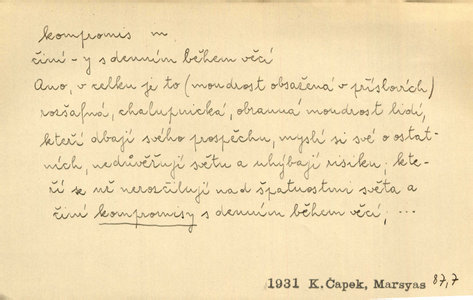 kompromis m.
činí -y s denním během věcí
Ano, v celku je to (moudrost obsažená v příslovích)
rozšafná, chalupnická, obranná moudrost lidí,
kteří dbají svého prospěchu, myslí si své o ostat-
ních, nedůvěřují světu a uhýbají risiku; kte-
ří se ně nerozčilují nad špatnostmi světa a
činí kompromisy s denním během věcí; ...
1931 K. Čapek, Marsyas 87,7